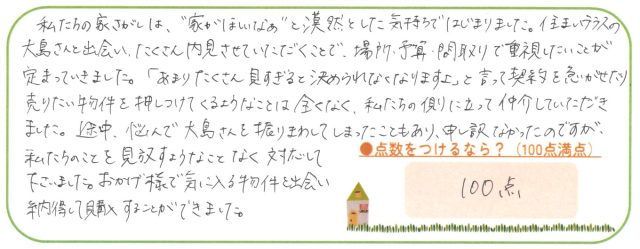 私たちの家さがしは、"家がほしいなぁ"と漠然とした気持ちではじまりました。住まいるプラスの
大島さんと出会い、たくさん内見させていただくことで、場所・予算・間取りで重視したいことが
定まっていきました。「あまりたくさん見すぎると決められなくなりますよ」と言って契約を急がせたり
売りたい物件を押しつけてくるようなことは全くなく、私たちの側に立って仲介していただき
ました。途中、悩んで大島さんを振りまわしてしまったこともあり、申し訳なかったのですが、
私たちのことを見放すようなことなく対応して
下さいました。おかげ様で気に入る物件と出会い
納得して購入することができました。
●点数をつけるなら？（100点満点）
100点